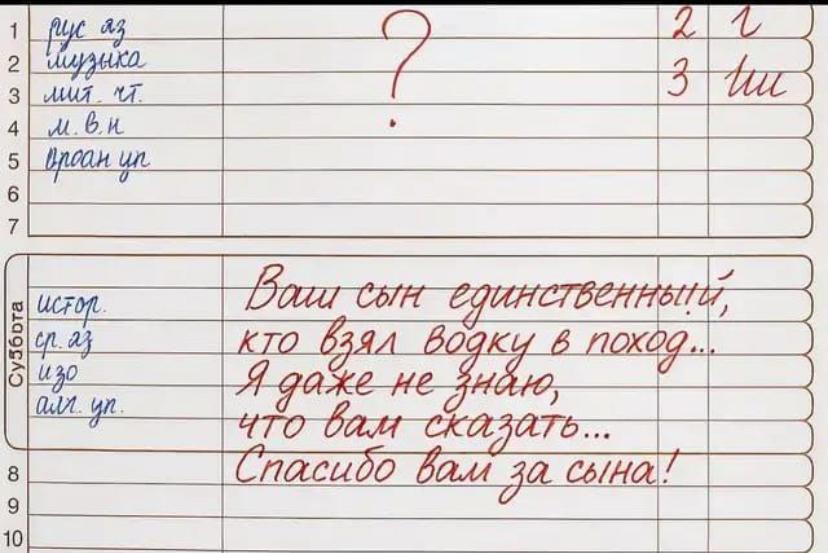 1 рус яз 2 г
2 музыка
3 лит. чт. 3 Ши
4 м. в. н
5 
6
7
Суббота
истор.
ср. яз
изо
алг. уп.
Ваш сын единственный,
кто взял водку в поход...
Я даже не знаю,
что вам сказать...
Спасибо вам за сына!
8
9
10
?